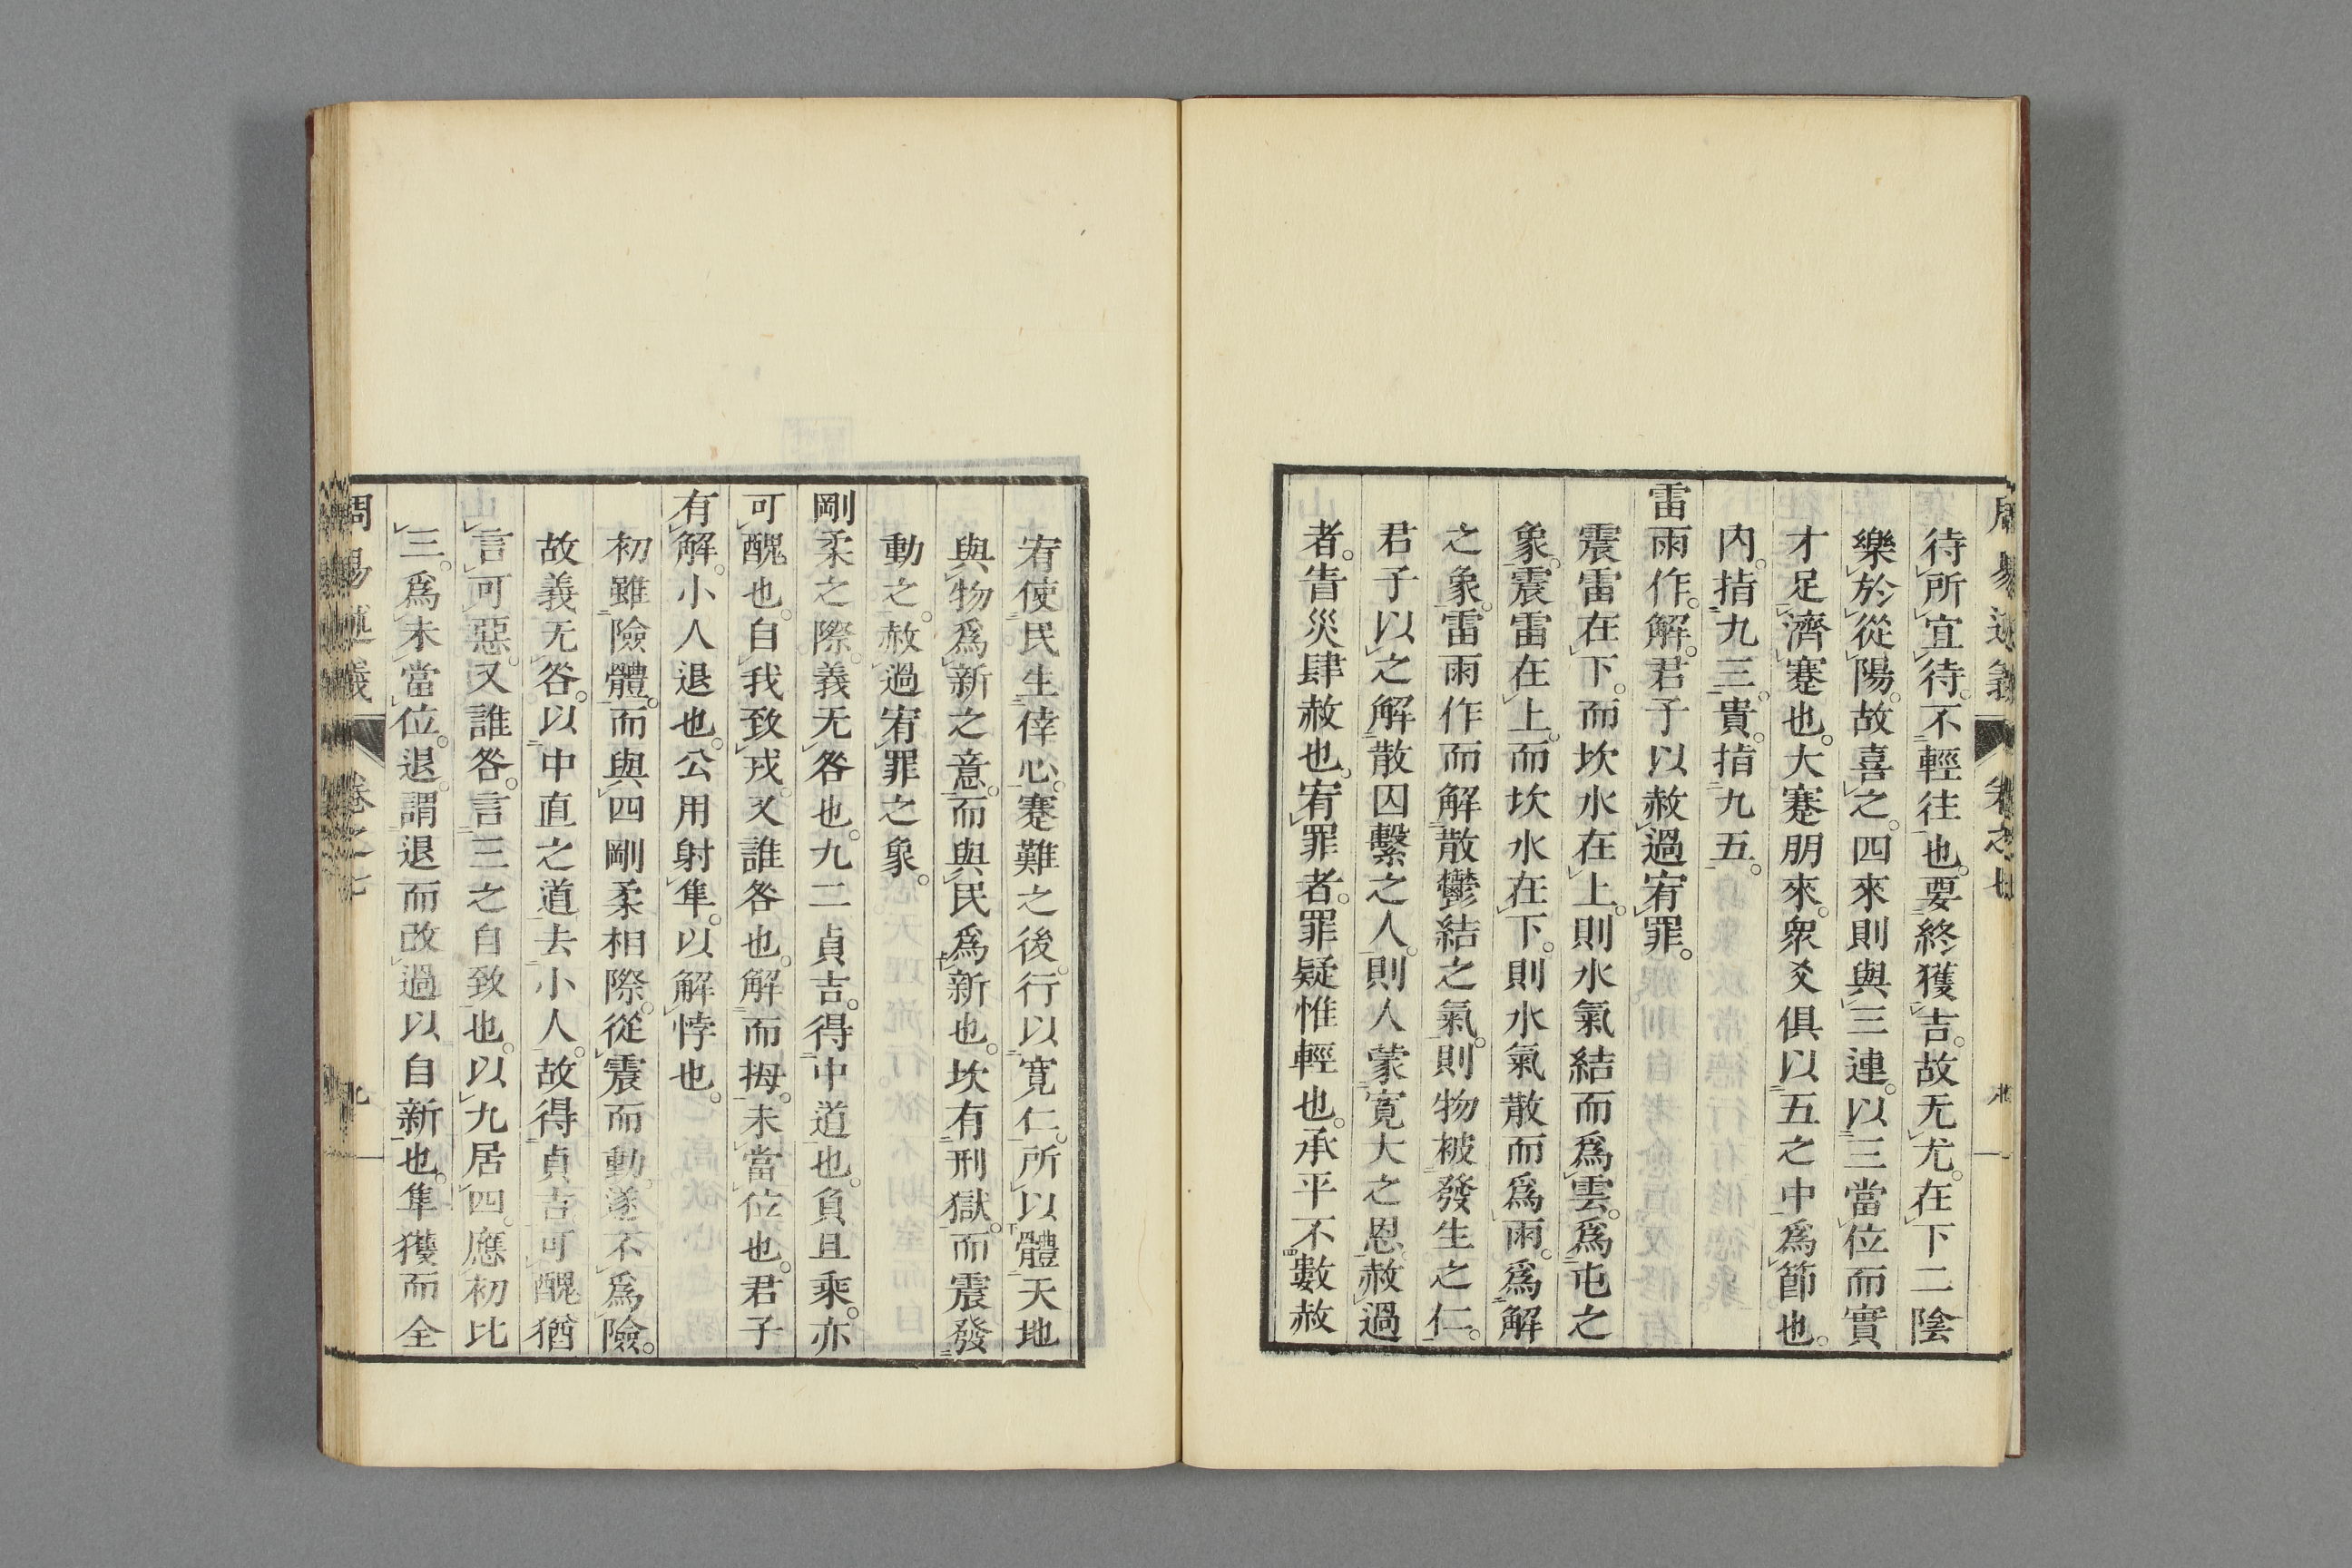 周易述義 卷之七
待所宜待。不輕往也。要終獲吉。故无尤。在下二陰
樂於從陽。故喜之。四來則與三連。以三當位而實
才足濟蹇也。大蹇朋來。衆爻俱以五之中爲節也。
內。指九三。貴。指九五。
雷雨作。解。君子以赦過宥罪。
震雷在下。而坎水在上。則水氣結而爲雲。爲屯之
象。震雷在上。而坎水在下。則水氣散而爲雨。爲解
之象。雷雨作而解散鬱結之氣。則物被發生之仁。
君子以之解散囚繫之人。則人蒙寬大之恩。赦過
者。眚災肆赦也。宥罪者。罪疑惟輕也。承平不數赦
宥使民生倖心。蹇難之後。行以寬仁。所以體天地
與物爲新之意。而與民爲新也。坎有刑獄。而震發
動之。赦過宥罪之象。
剛柔之際。義无咎也。九二貞吉。得中道也。負且乘。亦
可醜也。自我致戎。又誰咎也。解而拇。未當位也。君子
有解。小人退也。公用射隼。以解悖也。
初雖險體。而與四剛柔相際。從震而動。遂不爲險。
故義无咎。以中直之道。去小人。故得貞吉。可醜猶
言可惡。又誰咎。言三之自致也。以九居四。應初比
三。爲未當位。退。謂退而改過以自新也。隼獲而全
周易述義 卷之七